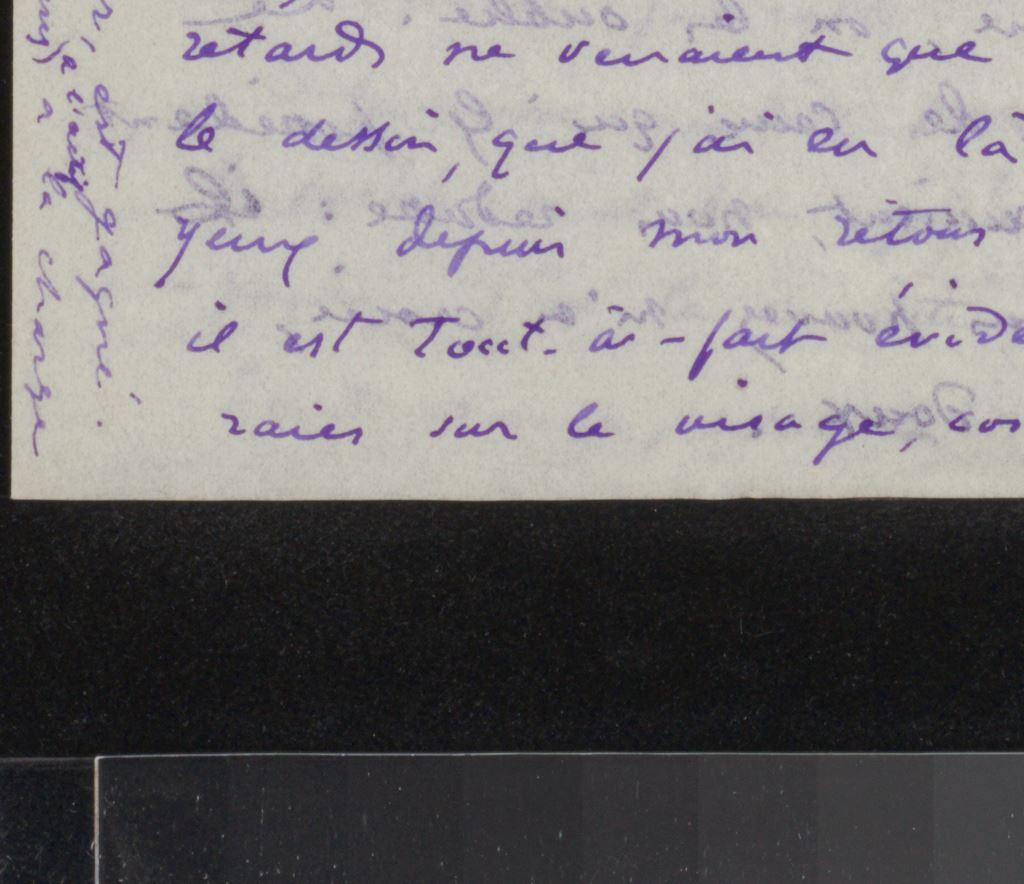 retards ne venaient que
le dessin, que j'ai eu là
yeux depuis mon retour
il est Tout-à-fait évide
raies sur le visage, cos
est gagné.
à la charge